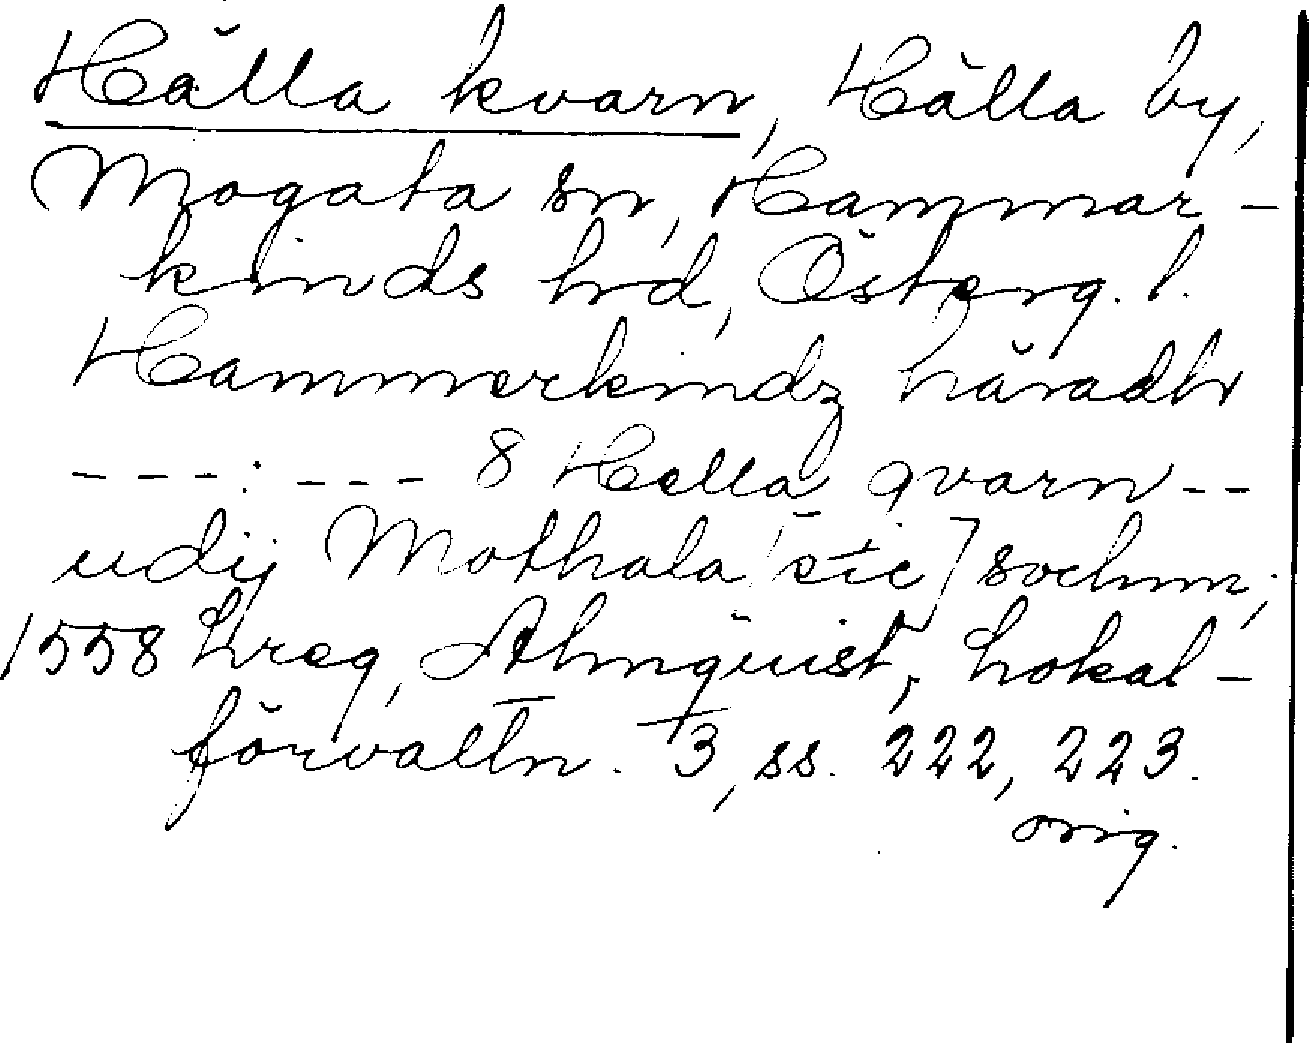 Hälla kvarn, Hälla by,
Mogata sn, Hammar-
kinds hd, Österg. l.
Hammerkindz häradh
---:--- 8 Hella qvarn--
udij Mothala [sic] sochnn;
1558 hreg, Almquist, Lokal-
förvaltn. I 3, ss. 222, 223.
orig.